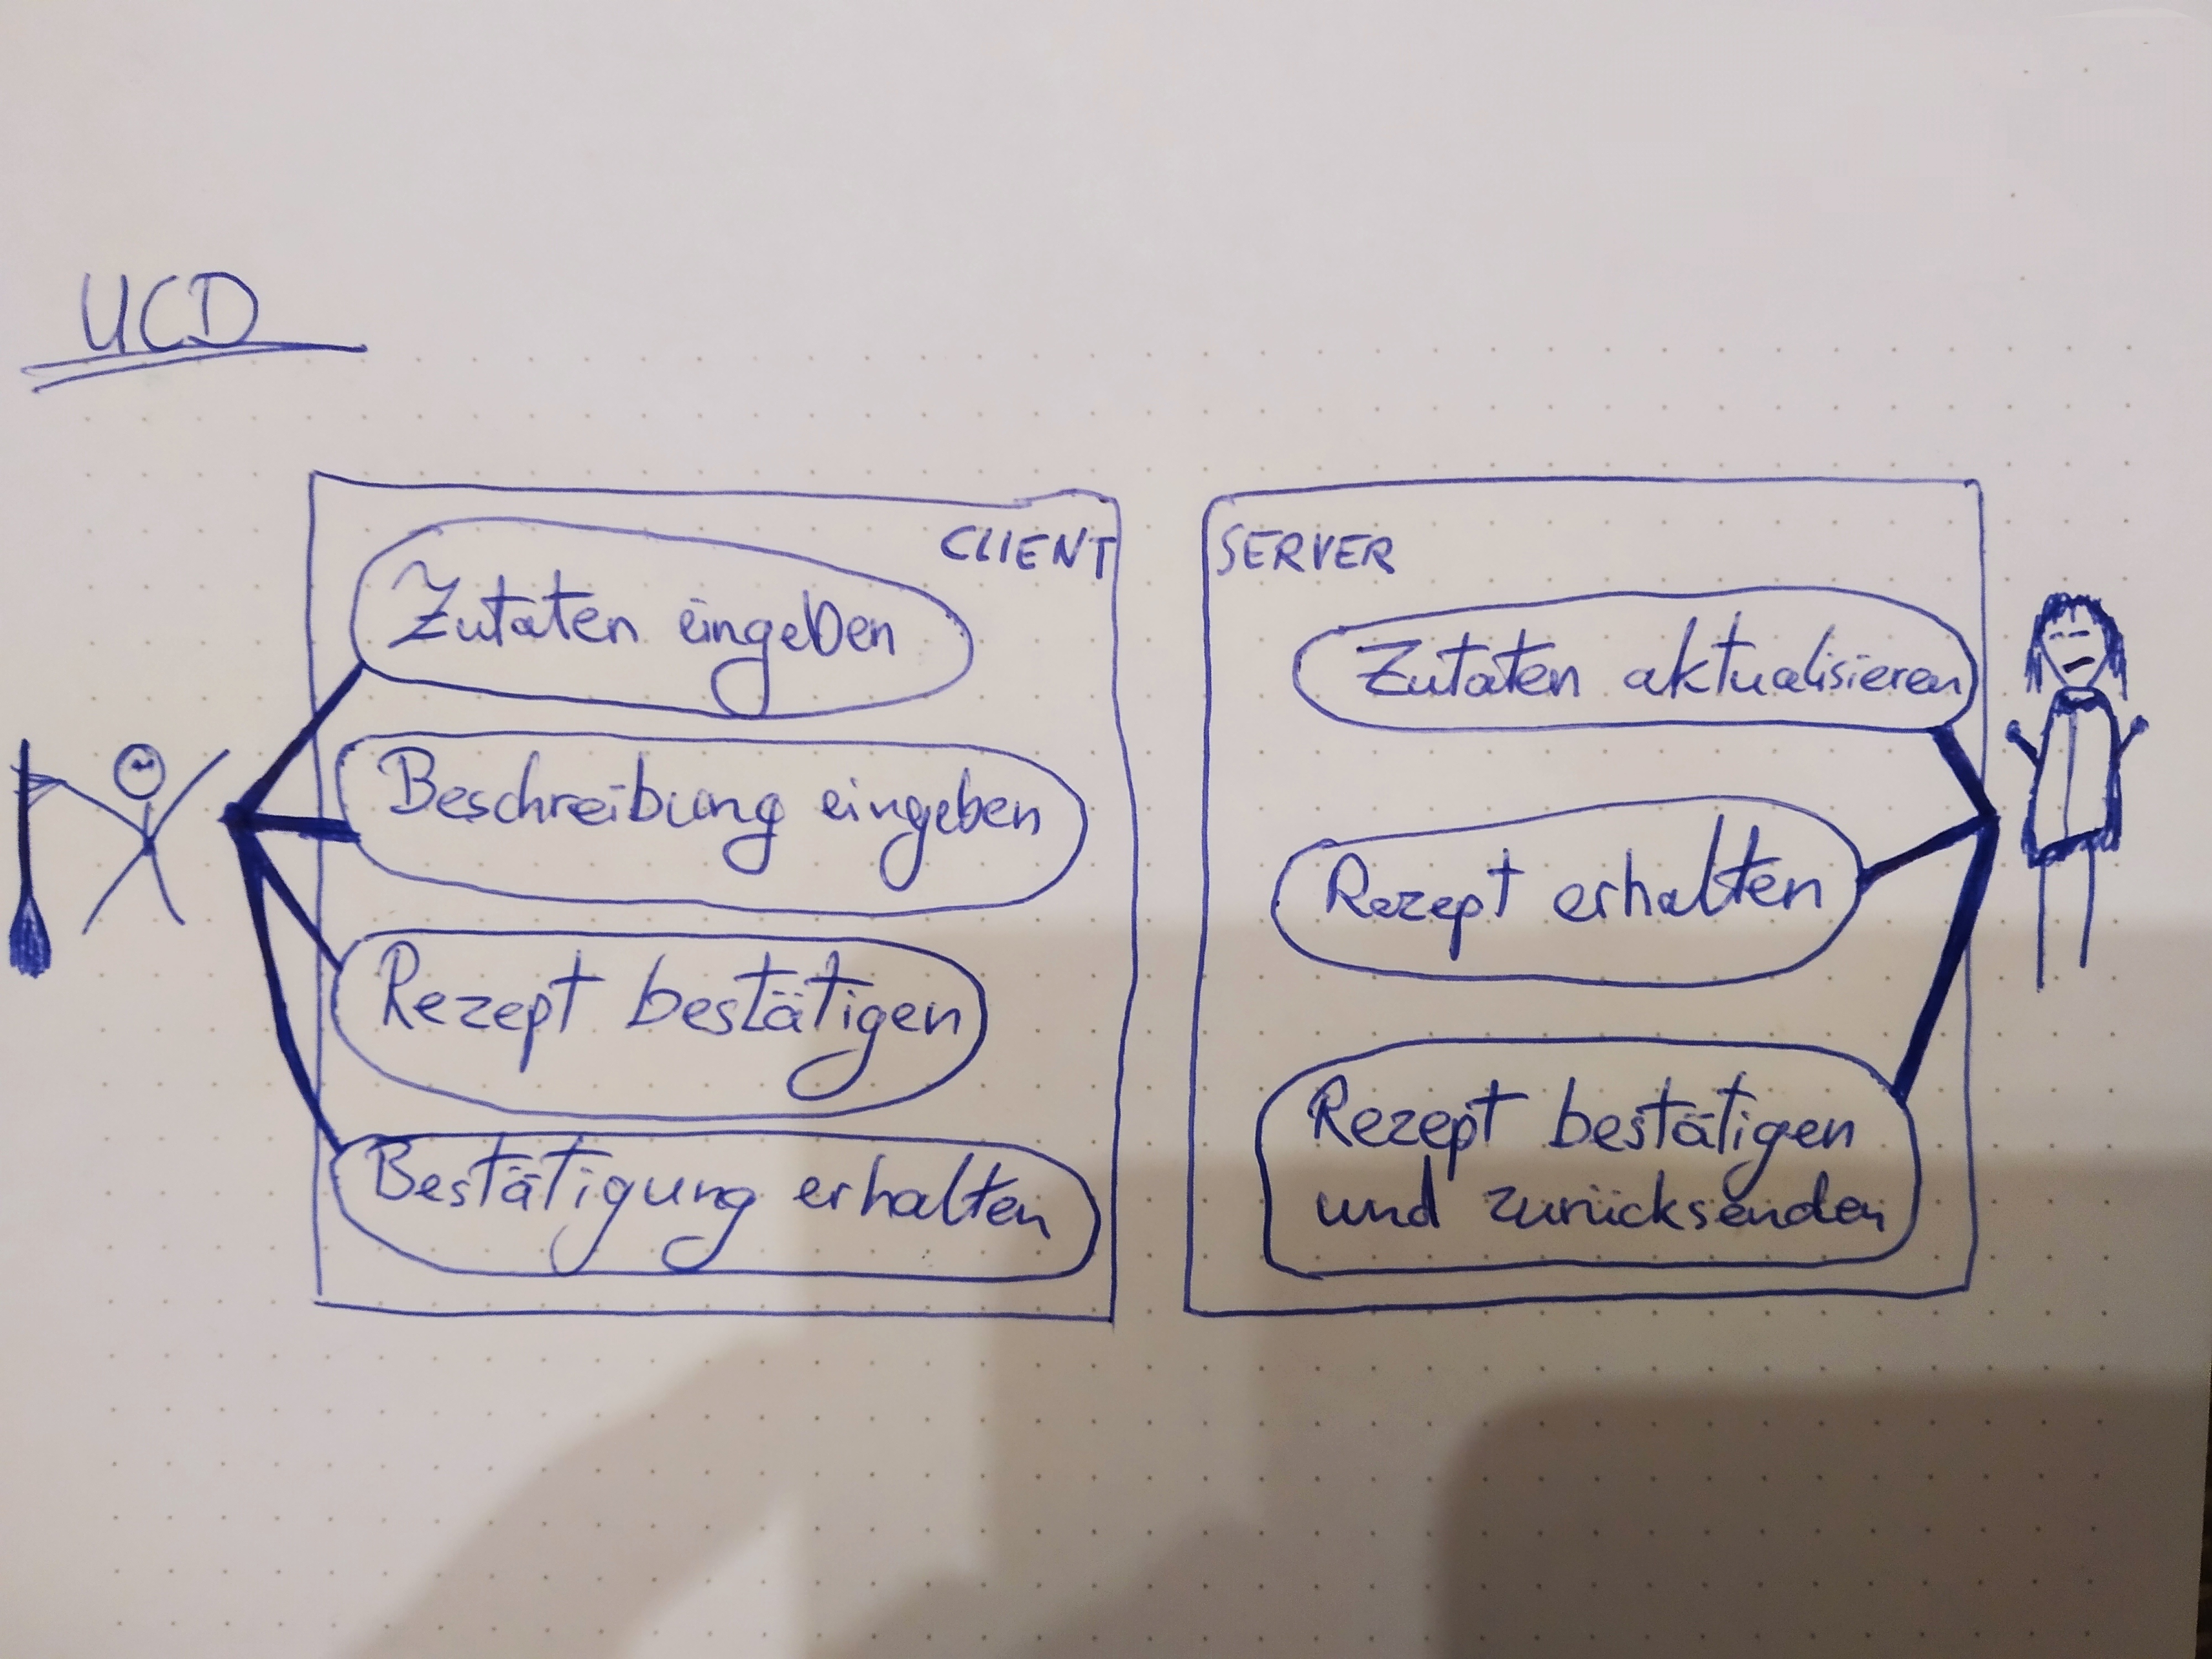 UCD
CLIENT
Zutaten eingeben
Beschreibung eingeben
Rezept bestätigen
Bestätigung erhalten
SERVER
Zutaten aktualisieren
Rezept erhalten
Rezept bestätigen
und zurücksenden